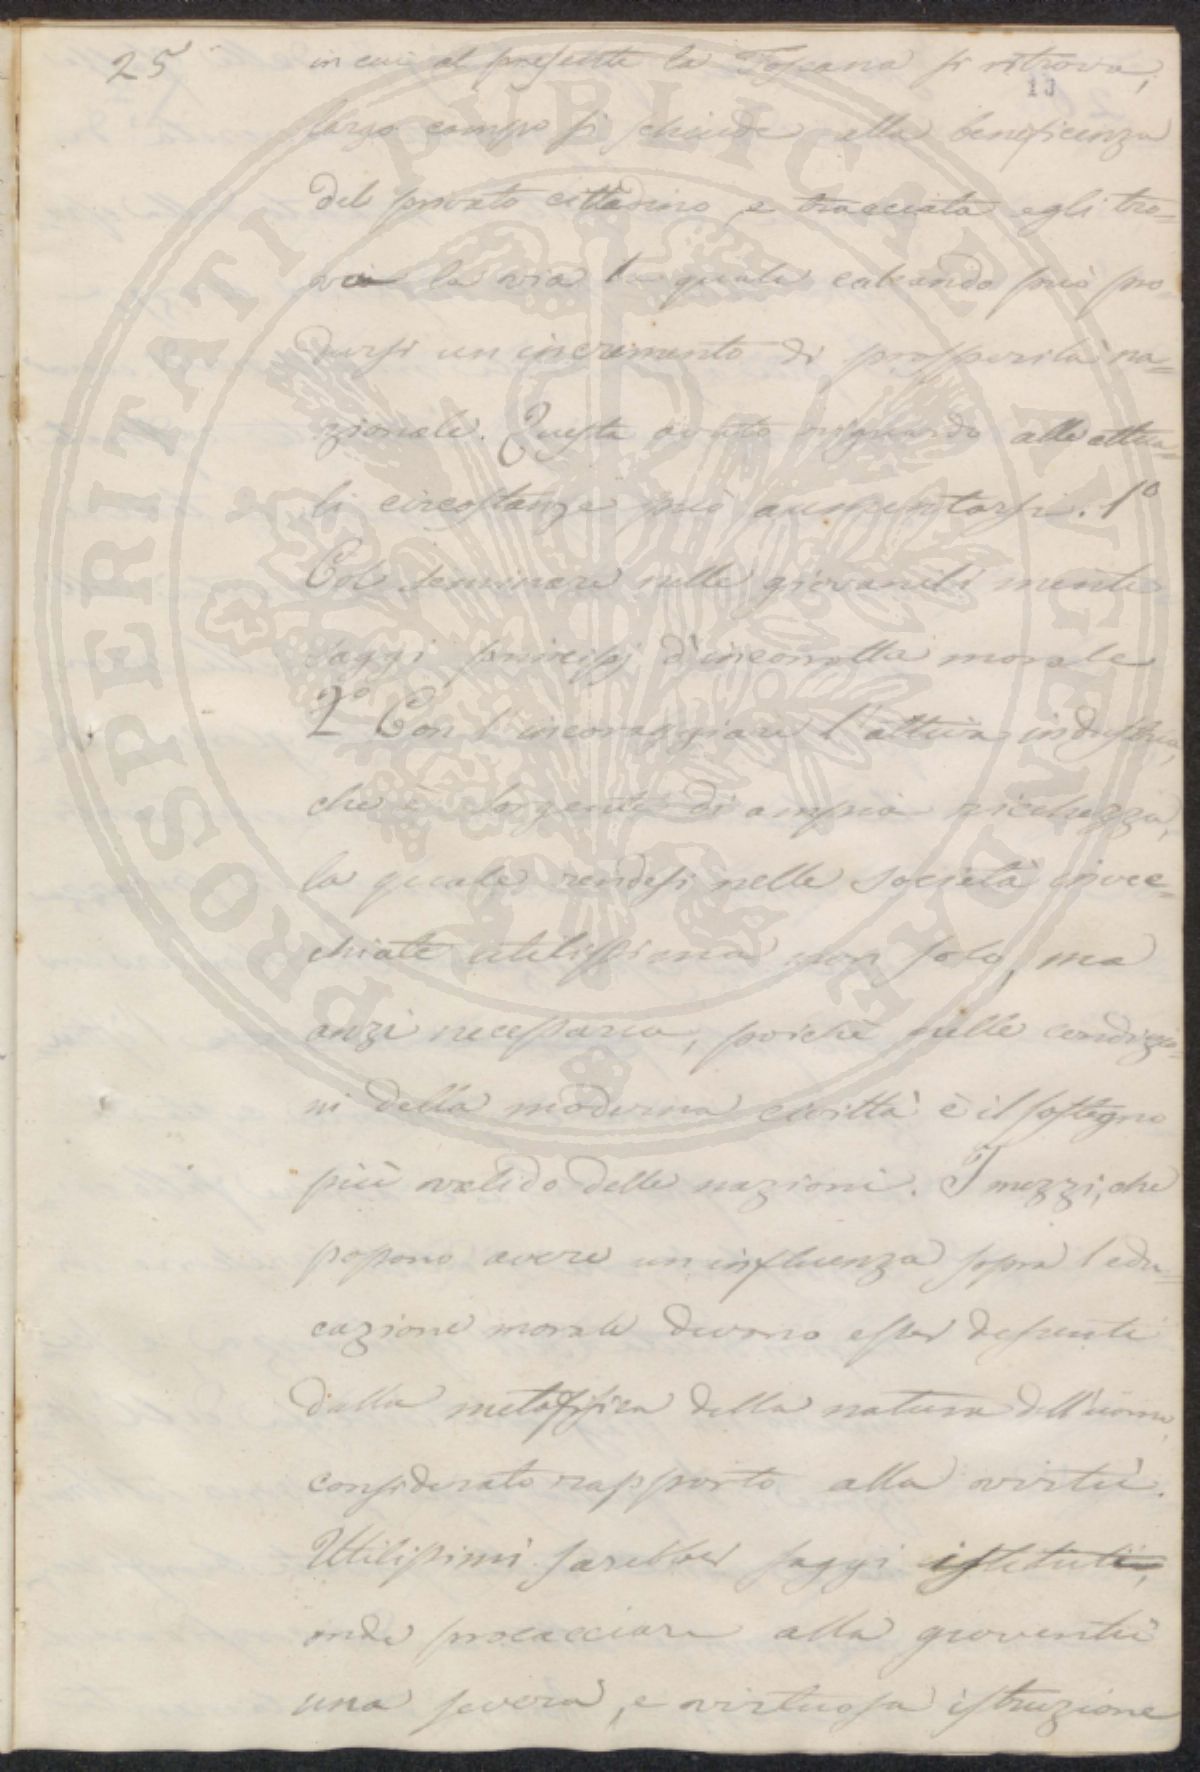 25
in cui al presente la Toscana si ritrova,
13
largo campo si schiude alla beneficenza
del privato cittadino, e tracciata egli tro=
va la via la quale calcando può pro=
dursi un incremento di prosperità na=
zionale. Questa avuto riguardo alle attua=
li circostanze può aumentarsi. 1º
Col seminare nelle giovanili menti
saggi principj d'incorrotta morale
2º Con l'incoraggiare l'attiva industria,
che è sorgente di ampia ricchezza,
la quale rendesi nelle società invec=
chiate utilissima non solo, ma
anzi necessaria, poichè nelle condizio=
ni della moderna civiltà è il sostegno
più valido delle nazioni. I mezzi, che
possono avere un influenza sopra l'edu=
cazione morale devono esser desunti
dalla metafisica della natura dell'uomo,
considerato rapporto alla virtù.
Utilissimi sarebber saggi istituti,
onde procacciare alla gioventù
una severa, e virtuosa istruzione
PROSPERITATI PUBLICAE AVGENDAE